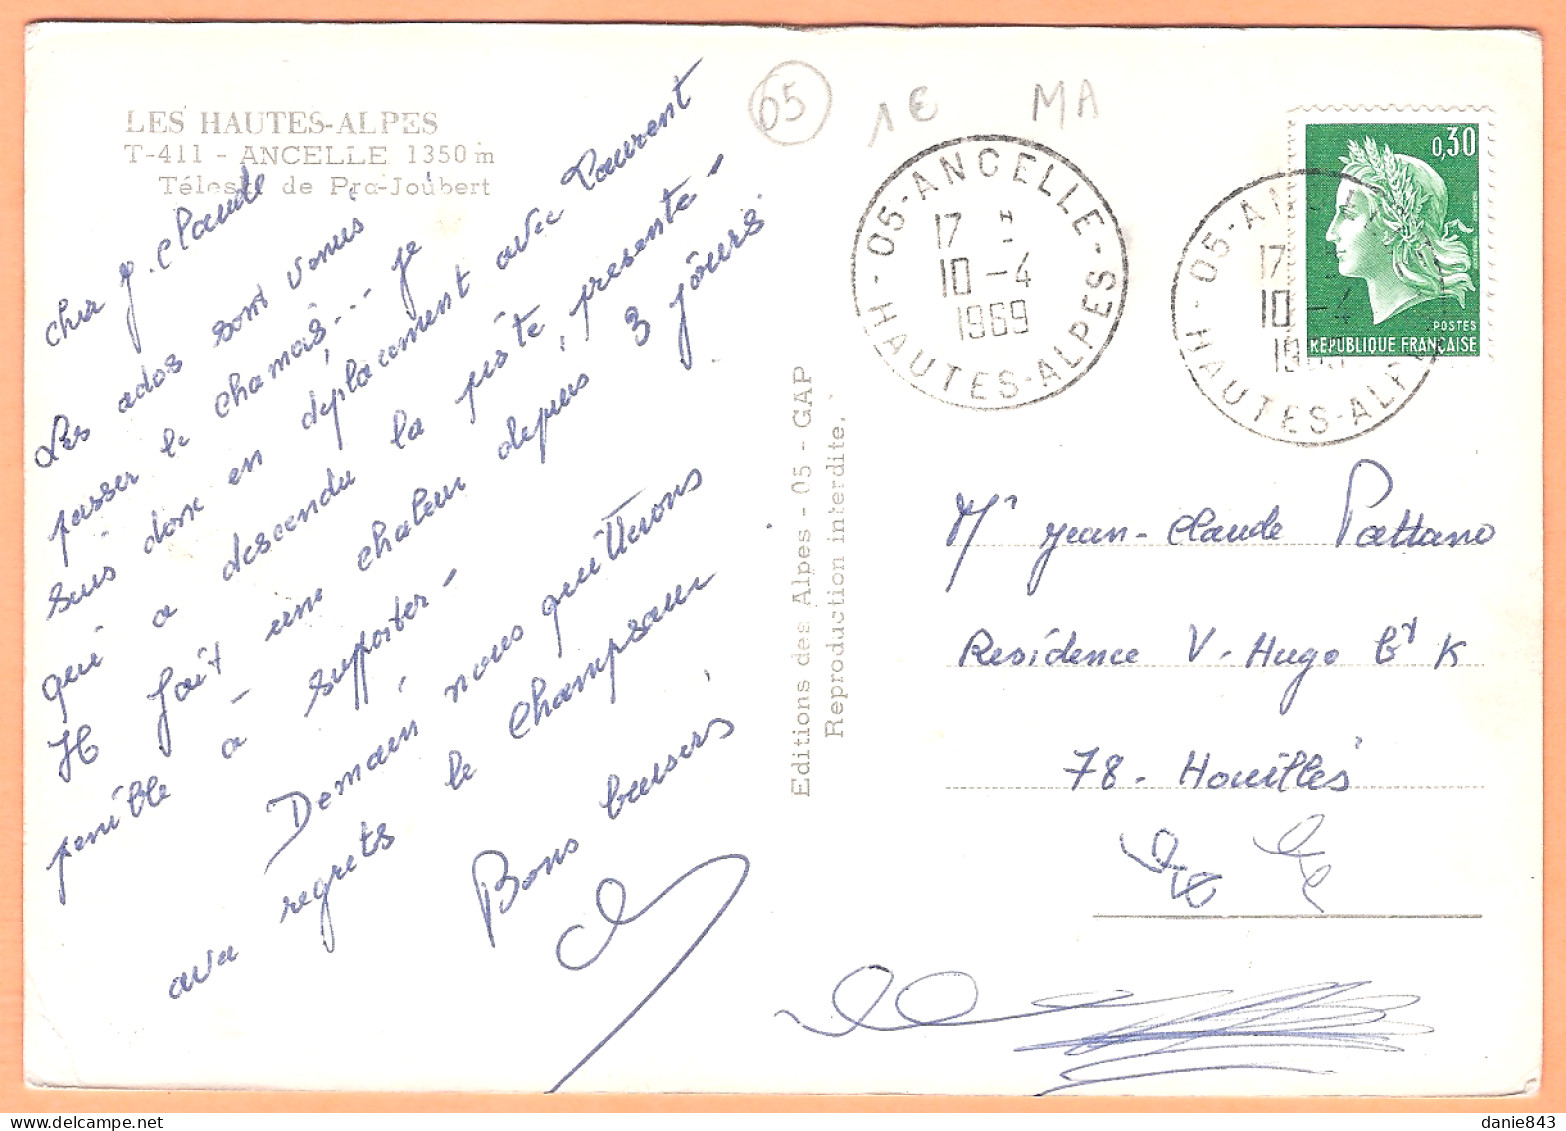 LES HAUTES-ALPES
T-411 - ANCELLE 1350 m
Télésk de Pra-Joubert
cher J. Claude
Les ados sont venus
passer le chamois... je
suis donc en déplacement avec Laurent
qui a descendu la piste presente -
Il fait une chaleur depuis 3 jours
penible à supporter -
Demain nous quitterons
avec regrets le Champsaur
Bons baisers
Editions des Alpes - 05 - GAP
Reproduction interdite.
05
1€
MA
05-ANCELLE-HAUTES-ALPES-
17 H
10 -4
1969
05-AN
HAUTES-ALPE
17
10 -4
0,30
POSTES
REPUBLIQUE FRANÇAISE
Mr Jean-Claude Pattano
Residence V-Hugo Bt K
78 - Houilles
danie843